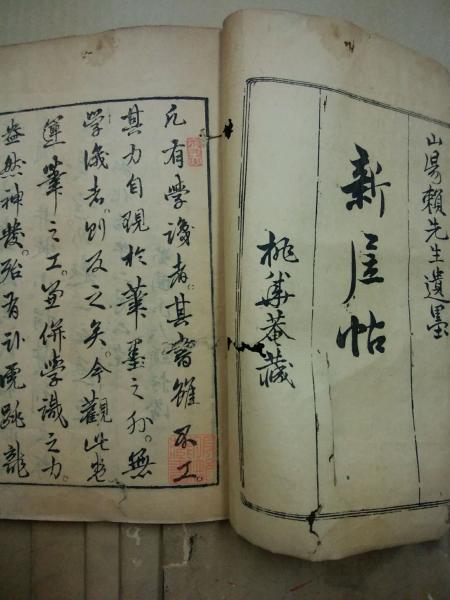 山陽賴先生遺墨
新居帖
桃華菴藏
凡有學識者。其書雖不工。
其力自現於筆墨之外。無
學識者。則反之矣。今觀此老
運筆之工。並併學識之力。
盎然神發。殆有臥虎跳龍